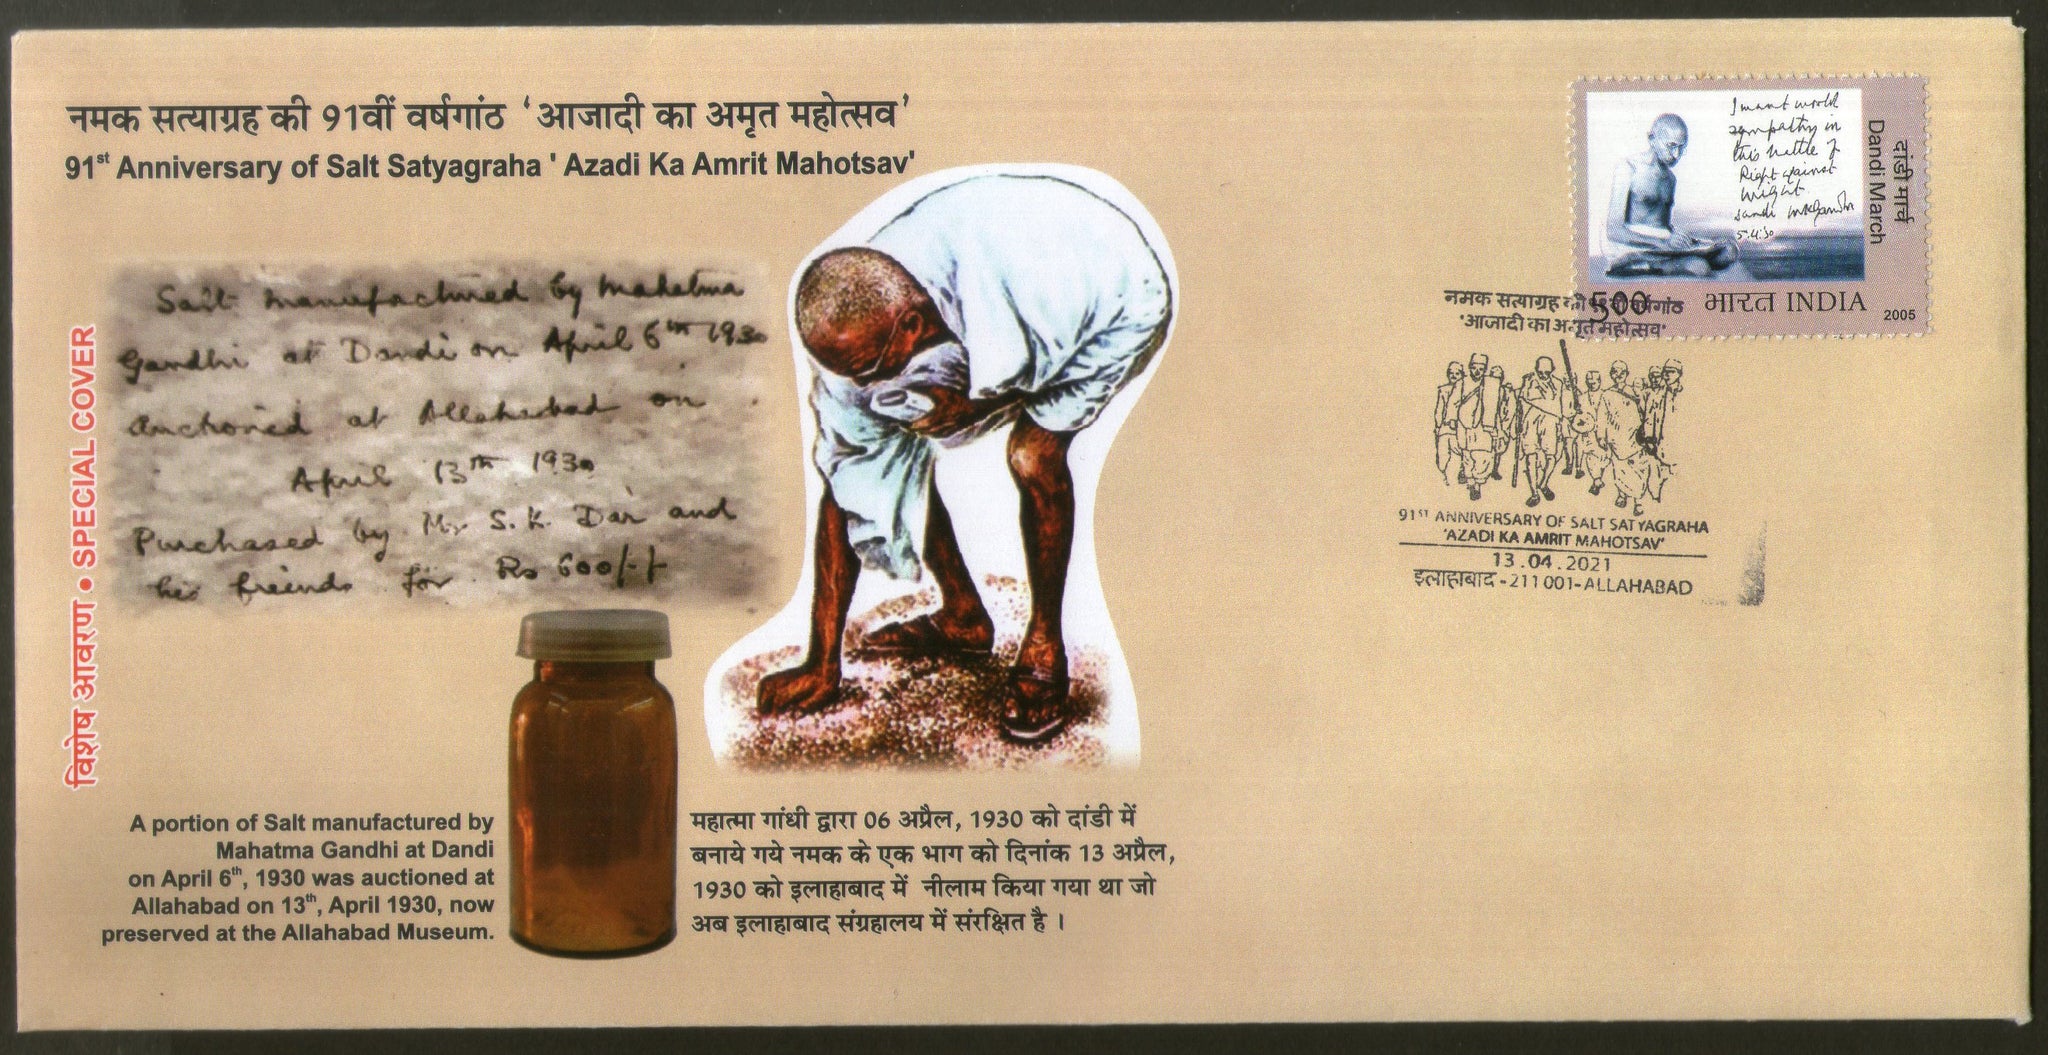 नमक सत्याग्रह की 91वीं वर्षगांठ 'आजादी का अमृत महोत्सव'
91st Anniversary of Salt Satyagraha ' Azadi Ka Amrit Mahotsav'
विशेष आवरण • SPECIAL COVER
Salt manufactured by Mahatma
Gandhi at Dandi on April 6th 1930
Auchoned at Allahabad on
April 13th 1930
Purchased by Mr S. K. Dar and
his friends for Rs 600/-/-
A portion of Salt manufactured by
Mahatma Gandhi at Dandi
on April 6th, 1930 was auctioned at
Allahabad on 13th, April 1930, now
preserved at the Allahabad Museum.
महात्मा गांधी द्वारा 06 अप्रैल, 1930 को दांडी में
बनाये गये नमक के एक भाग को दिनांक 13 अप्रैल,
1930 को इलाहाबाद में नीलाम किया गया था जो
अब इलाहाबाद संग्रहालय में संरक्षित है ।
I want world
sympathy in
this battle of
Right against
might.
Dandi MKGandhi
5.4.30
दांडी मार्च
Dandi March
500 भारत INDIA
2005
नमक सत्याग्रह की 91वीं वर्षगांठ
'आजादी का अमृत महोत्सव'
91ST ANNIVERSARY OF SALT SATYAGRAHA
'AZADI KA AMRIT MAHOTSAV'
13.04.2021
इलाहाबाद-211001-ALLAHABAD